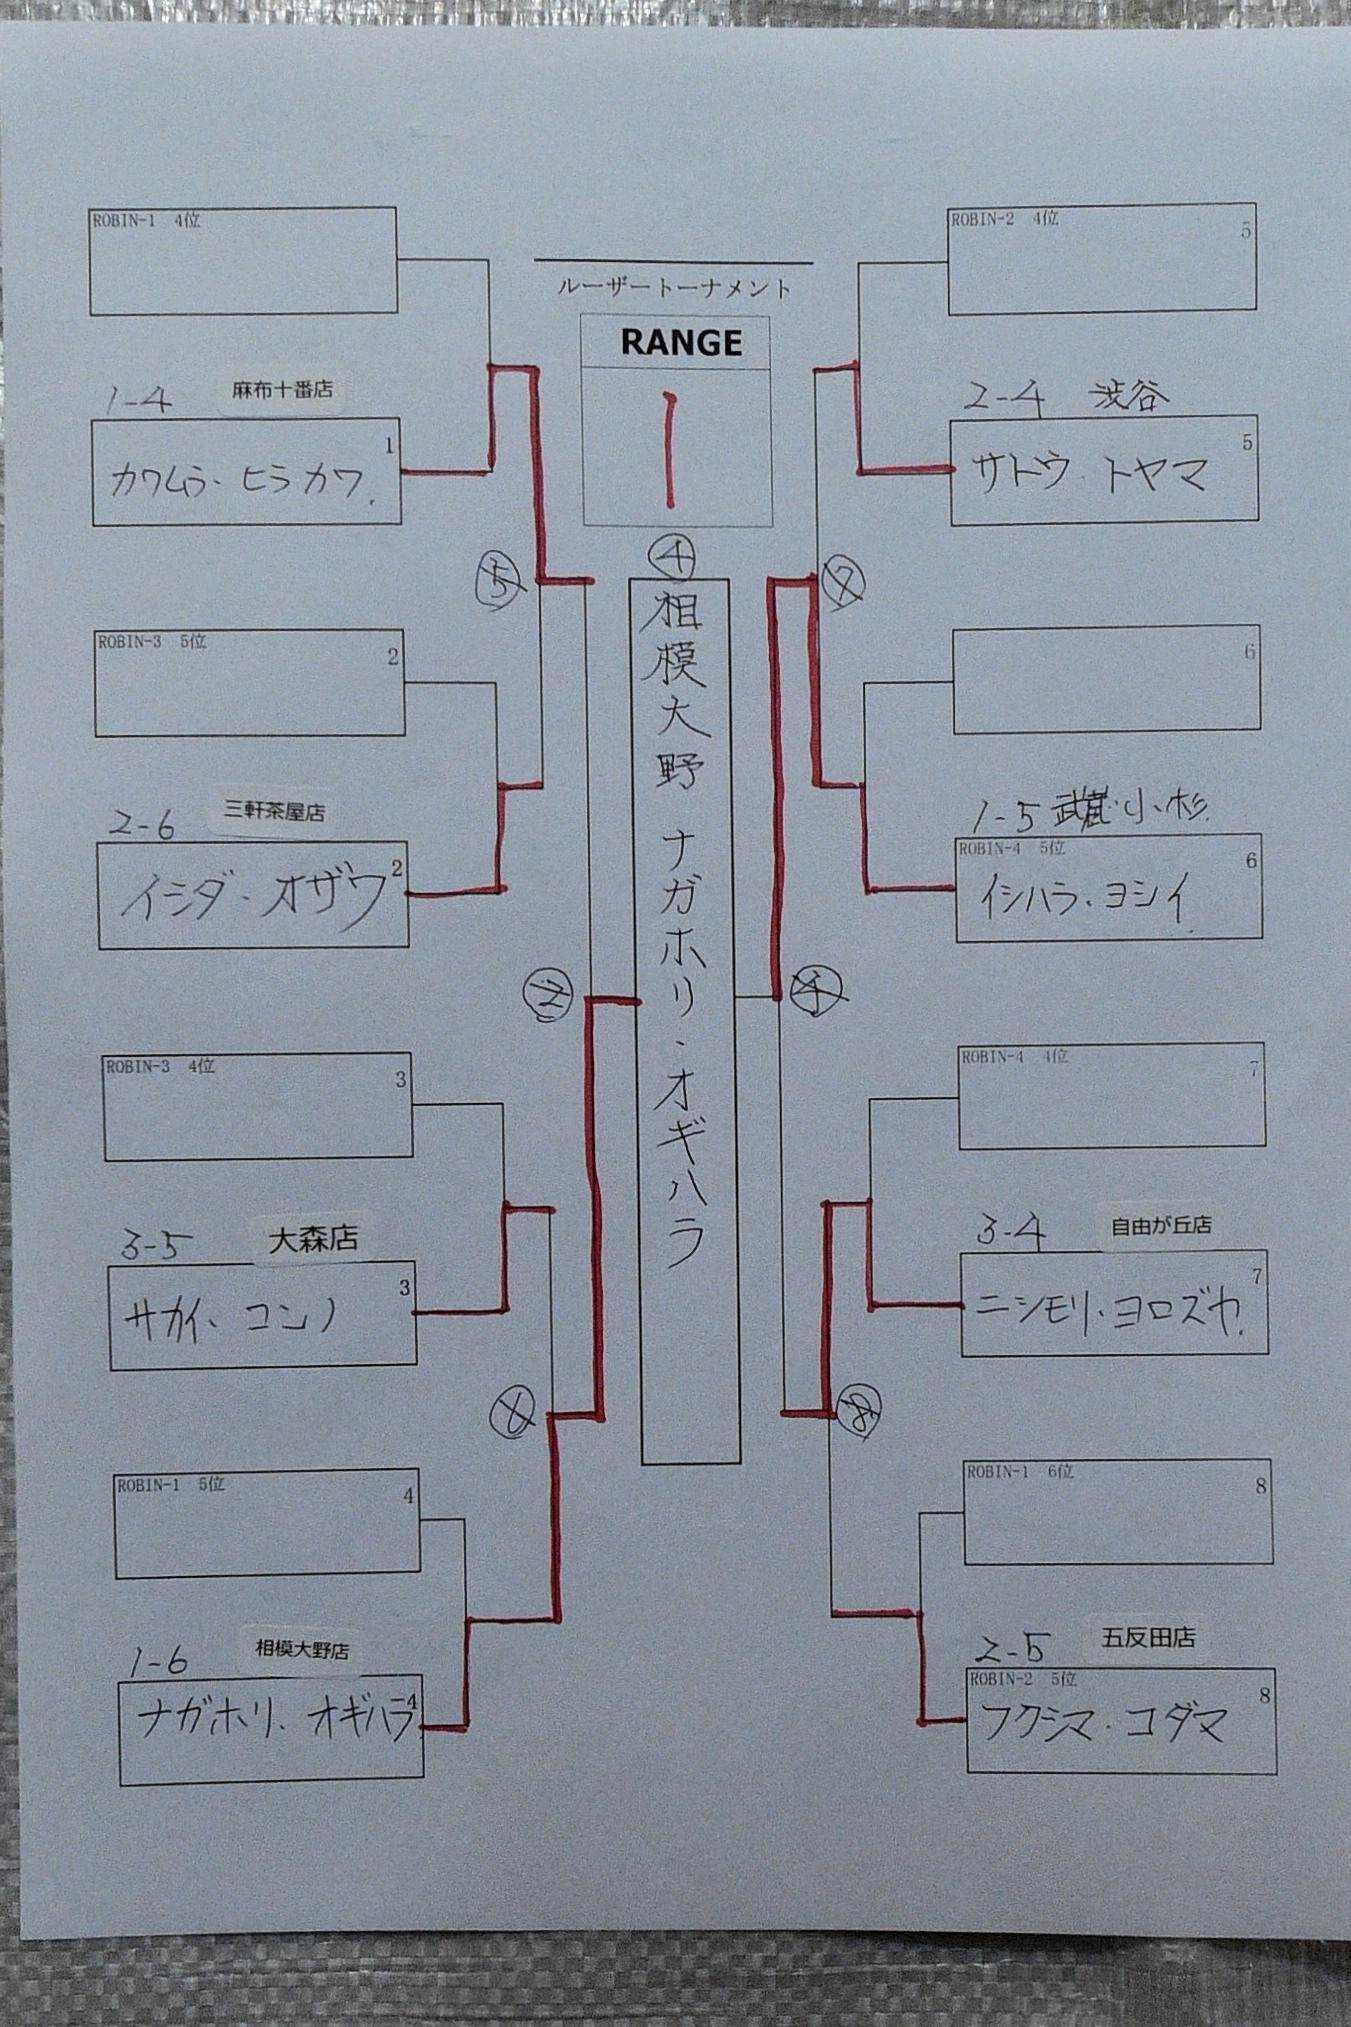 ルーザートーナメント
RANGE
1
④
相模大野 ナガホリ・オギハラ
ROBIN-1 4位
1-4 麻布十番店
1
カワムラ・ヒラカワ.
⑤
ROBIN-3 5位
2
2-6 三軒茶屋店
2
イシダ・オザワ
②
ROBIN-3 4位
3
3-5 大森店
3
サカイ・コンノ
ROBIN-1 5位
4
1-6 相模大野店
4
ナガホリ・オギハラ
ROBIN-2 4位
5
2-4 渋谷
5
サトウ・トヤマ
⑦
6
1-5 武蔵小杉
ROBIN-4 5位
6
イシハラ・ヨシイ
④
ROBIN-4 4位
7
3-4 自由が丘店
7
ニシモリ・ヨロズヤ.
⑧
ROBIN-1 6位
8
2-5 五反田店
ROBIN-2 5位
8
フクシマ・コダマ